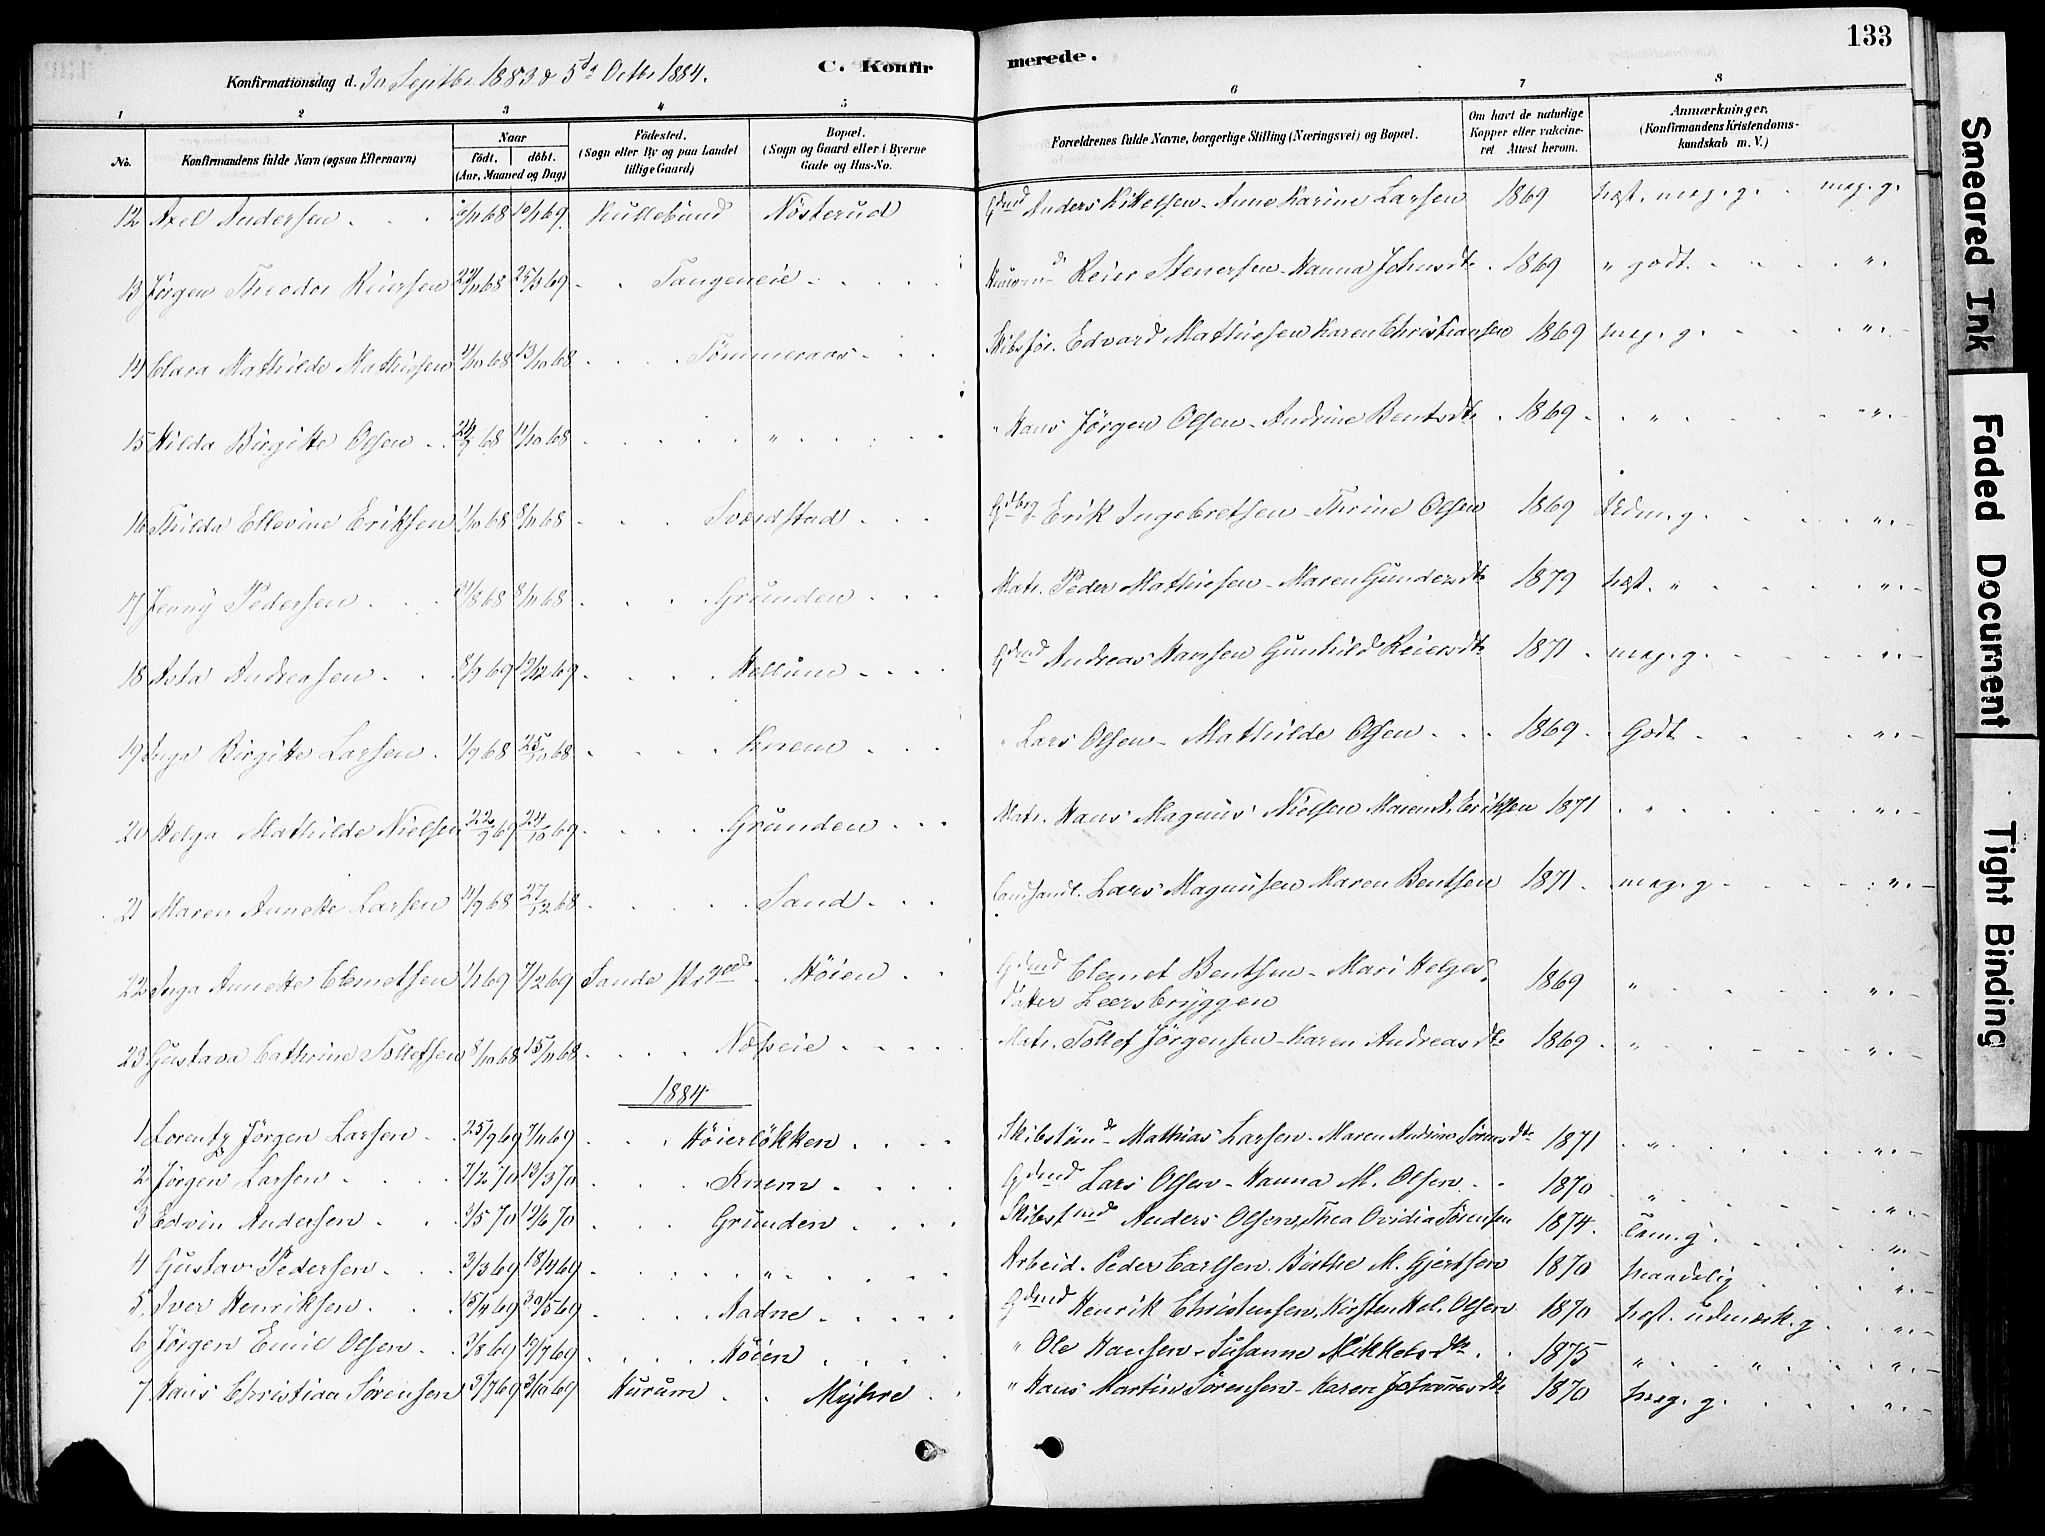 133
Konfirmationsdag d. 30 Septbr 1883 & 5te Octbr 1884. C. Konfirmerede.
1 2 3 4 5 6 7 8
No. Konfirmandens fulde Navn (ogsaa Efternavn) Naar født. døbt. (Aar, Maaned og Dag) Fødested. (Sogn eller By og paa Landet tillige Gaard) Bopæl. (Sogn og Gaard eller i Byerne Gade og Hus-No. Forældrenes fulde Navne, borgerlige Stilling (Næringsvei) og Bopæl. Om havt de naturlige Kopper eller vakcineret Attest herom. Anmærkninger, (Konfirmandens Kristendomskundskab m. V.)
12 Axel Andersen Hullebund Nösterud Gdmd Anders Kittelsen - Anne Karine Larsen 1869 næst. meg. g. meg. g.
13 Jörgen Theodor Reiersen 25/3 69 Tangeneie Reier Stenersen - Hanna Johnsdtr 1869 " godt "
14 Clara Mathilde Mathiesen 13/10 68 Tömmeraas Skibsför. Edvard Mathiesen Karen Christiansen 1869 meg. g. "
15 Hilda Birgitte Olsen 11/10 68 " " Hans Jörgen Olsen - Andrine Bentsdtr 1869 " "
16 Thilda Ellevine Eriksen 1/10 68 8/11 68 Sværdstad Erik Ingebretsen - Thrine Olsen 1869 "
17 Jenny Pedersen 8/11 68 Grunden Matr. Peder Mathiesen - Maren Gundersdtr 1879 næst. " "
18 Asta Andreasen 8/9 69 12/12 69 Hellum Gdmd Andreas Hansen Gunhild Reiersdtr 1871 meg. g. "
19 Inga Birgitte Larsen 1/9 68 25/10 68 Knem " Lars Olsen - Mathilde Olsen 1869 Godt "
20 Helga Mathilde Nielsen 22/9 69 24/10 69 Grunden Matr. Hans Magnus Nielsen Maren A. Eriksen 1871 " "
21 Maren Annette Larsen 11/9 68 27/12 68 Sand Lars Magnusen Maren Bentsen 1871 meg. g "
22 Inga Annette Clemetsen 1/1 69 7/2 69 Sande Höien Gdmd Clemet Bentsen - Mari Helges-
datter Leersbryggen 1869 " "
23 Gustava Cathrine Tollefsen 8/10 68 15/11 68 Næseie Matr. Tollef Jörgensen - Karen Andreasdtr 1869 " "
1884
1 Lorentz Jörgen Larsen 25/9 69 7/11 69 Höierlökken Mathias Larsen - Maren Andrine Sörensdtr 1871 " "
2 Jörgen Larsen 7/2 70 13/3 70 Knem Gdmd Lars Olsen - Hanna M. Olsen 1870 " "
3 Edvin Andersen 3/5 70 12/6 70 Grunden Anders Olsen, Thea Ovidia Sörensen 1874 "
4 Gustav Pedersen 3/3 69 18/4 69 " Arbeid. Peder Carlsen. Birthe M. Gjertsen 1870 maadelig "
5 Iver Henriksen 15/4 69 30/5 69 Aadne Gdmd Henrik Christensen, Kirsten Hel. Olsen 1870 næst. udmærk. g. "
6 Jörgen Emil Olsen 3/8 69 Höien " Ole Hansen, Susanne Mikkelsdtr 1875 " " "
7 Hans Christian Sörensen 3/7 69 3/10 69 Hurum Myhre " Hans Martin Sörensen - Karen Johannesdtr 1870 meg. g. "
Smeared Ink
Faded Document
Tight Binding